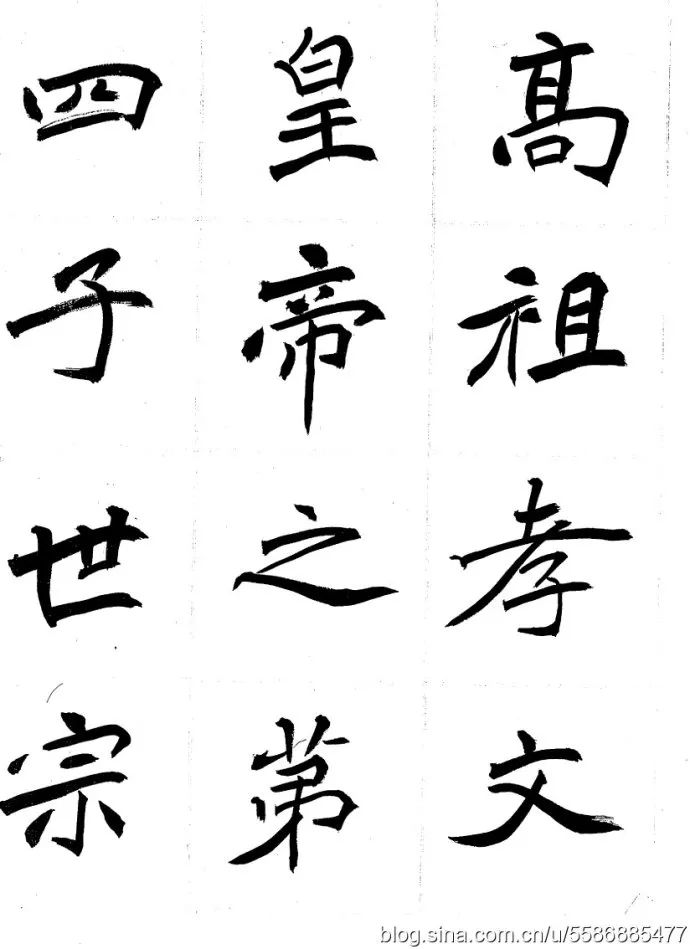 高祖孝文
皇帝之苐
四子世宗
blog.sina.com.cn/u/5586885477